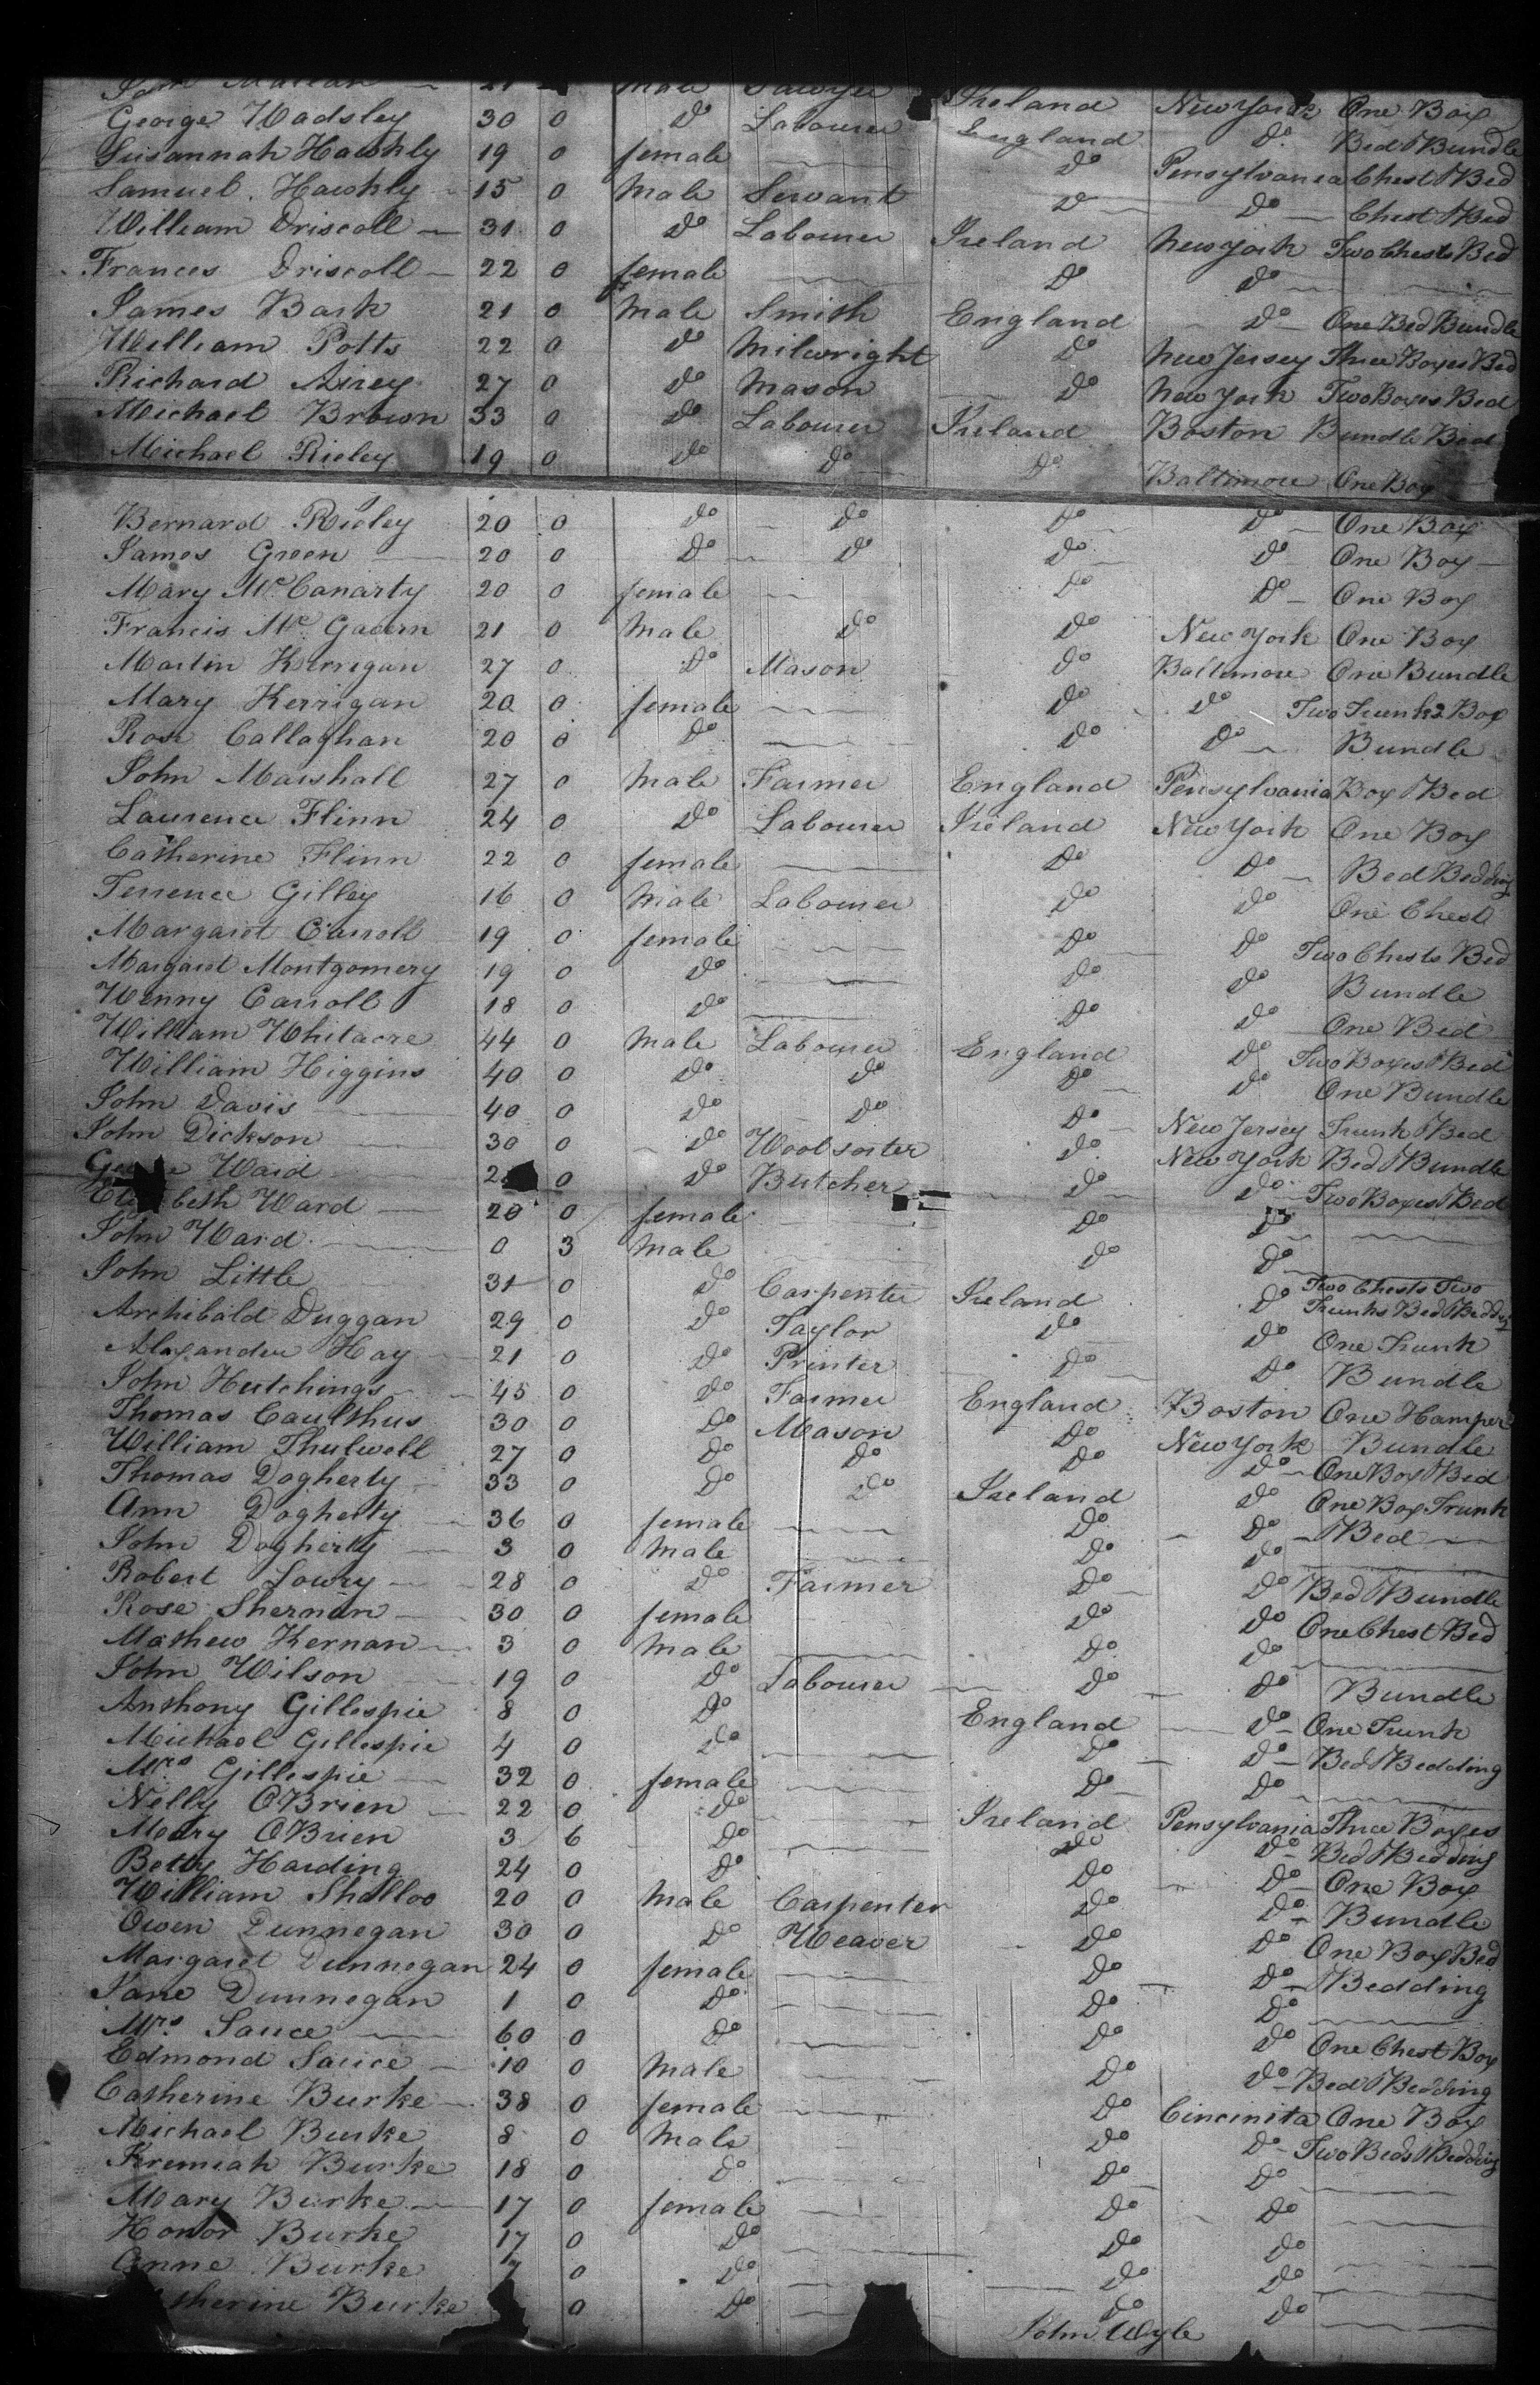 21 Male Sawyer Ireland New York One Box
George Wadsley 30 0 Do Labourer England Do Bed & Bundle
Susannah Hawhly 19 0 female Do Pensylvania Chest & Bed
Samuel Hawhly 15 0 Male Servant Do Do Chest & Bed
William Driscoll 31 0 Do Labourer Ireland New York Two Chests Bed
Frances Driscoll 22 0 female Do Do
James Bark 21 0 Male Smith England Do One Bed Bundle
William Potts 22 0 Do Milwright Do New Jersey Three Boxes Bed
Richard Airey 27 0 Do Mason Do New York Two Boxes Bed
Michael Brown 33 0 Do Labourer Ireland Boston Bundle Bed
Michael Rieley 19 0 Do Do Do Baltimore One Box
Bernard Rieley 20 0 Do Do Do Do One Box
James Green 20 0 Do Do Do Do One Box
Mary McCanarty 20 0 female Do Do One Box
Francis Mc Gavern 21 0 Male Do Do New York One Box
Martin Kerrigan 27 0 Do Mason Do Baltimore One Bundle
Mary Kerrigan 20 0 female Do Do Two Trunks Box
Rose Callaghan 20 0 Do Do Do Bundle
John Marshall 27 0 Male Farmer England Pensylvania Box & Bed
Laurence Flinn 24 0 Do Labourer Ireland New York One Box
Catherine Flinn 22 0 female Do Do Bed Bedding
Terrence Gilley 16 0 Male Labourer Do Do One Chest
Margaret Carroll 19 0 female Do Do Two Chests Bed
Margaret Montgomery 19 0 Do Do Do Bundle
Wenny Carroll 18 0 Do Do Do One Bed
William Whitacre 44 0 Male Labourer England Do Two Boxes & Bed
William Higgins 40 0 Do Do Do Do One Bundle
John Davis 40 0 Do Do Do New Jersey Trunk & Bed
John Dickson 30 0 Do Woolsorter Do New York Bed & Bundle
Ward 0 Do Butcher Do Do Two Boxes & Bed
Ward 20 0 female Do Do
John Ward 0 3 Male Do Do
John Little 31 0 Do Carpenter Ireland Do Two Chests Two Trunks Bed & Bedding
Archibald Duggan 29 0 Do Taylor Do Do One Trunk
Alexander Hay 21 0 Do Printer Do Do Bundle
John Hutchings 45 0 Do Farmer England Boston One Hamper
Thomas Caulthus 30 0 Do Mason Do New York Bundle
William Thulwell 27 0 Do Do Do Do One Box & Bed
Thomas Dogherty 33 0 Do Do Ireland Do One Box Trunk
Ann Dogherty 36 0 female Do Do & Bed
John Dogherty 3 0 Male Do Do
Robert Lowry 28 0 Do Farmer Do Do Bed & Bundle
Rose Shernan 30 0 female Do Do One Chest Bed
Mathew Kernan 3 0 Male Do Do
John Wilson 19 0 Do Labourer Do Do Bundle
Anthony Gillespie 8 0 Do England Do One Trunk
Michael Gillespie 4 0 Do Do Do Bed & Bedding
Mrs Gillespie 32 0 female Do Do
Nelly OBrien 22 0 Do Ireland Pensylvania Three Boxes
Mary OBrien 3 6 Do Do Do Bed & Bedding
Betty Harding 24 0 Do Do Do One Box
William Shalloo 20 0 Male Carpenter Do Do Bundle
Owen Dunnegan 30 0 Do Weaver Do Do One Box Bed
Margaret Dunnegan 24 0 female Do Do & Bedding
Jane Dunnegan 1 0 Do Do Do
Mrs Sauce 60 0 Do Do Do One Chest Box
Edmond Sauce 10 0 Male Do Do Bed & Bedding
Catherine Burke 38 0 female Do Cincinita One Box
Michael Burke 8 0 Male Do Do Two Beds & Bedding
Jeremiah Burke 18 0 Do Do Do
Mary Burke 17 0 female Do Do
Honor Burke 17 0 Do Do Do
Anne Burke 7 0 Do Do Do
Burke 0 Do Do Do
John Wyle